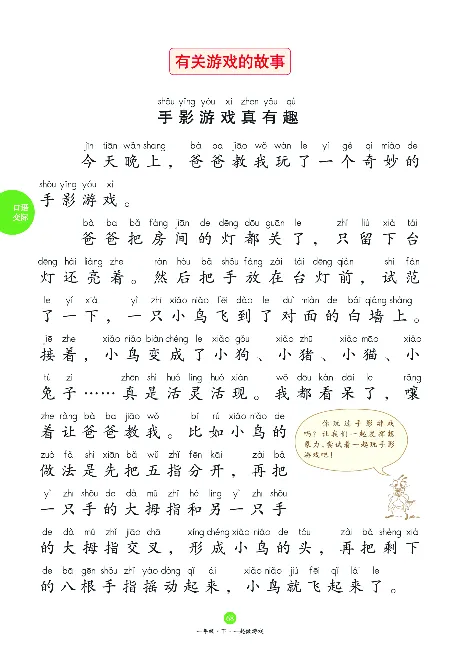 有关游戏的故事
shǒu yǐng yóu xì zhēn yǒu qù
手影游戏真有趣
jīn tiān wǎn shang bà ba jiāo wǒ wán le yí gè qí miào de
今天晚上，爸爸教我玩了一个奇妙的
shǒu yǐng yóu xì
手影游戏。
口语
交际
bà ba bǎ fáng jiān de dēng dōu guān le zhǐ liú xià tái
爸爸把房间的灯都关了，只留下台
dēng hái liàng zhe rán hòu bǎ shǒu fàng zài tái dēng qián shì fàn
灯还亮着。然后把手放在台灯前，试范
le yí xià yì zhī xiǎo niǎo fēi dào le duì miàn de bái qiáng shàng
了一下，一只小鸟飞到了对面的白墙上。
jiē zhe xiǎo niǎo biàn chéng le xiǎo gǒu xiǎo zhū xiǎo māo xiǎo
接着，小鸟变成了小狗、小猪、小猫、小
tù zi zhēn shì huó líng huó xiàn wǒ dōu kàn dāi le rǎng
兔子……真是活灵活现。我都看呆了，嚷
zhe ràng bà ba jiāo wǒ bǐ rú xiǎo niǎo de
着让爸爸教我。比如小鸟的
zuò fǎ shì xiān bǎ wǔ zhǐ fēn kāi zài bǎ
做法是先把五指分开，再把
yì zhī shǒu de dà mǔ zhǐ hé lìng yì zhī shǒu
一只手的大拇指和另一只手
de dà mǔ zhǐ jiāo chā xíng chéng xiǎo niǎo de tóu zài bǎ shèng xià
的大拇指交叉，形成小鸟的头，再把剩下
de bā gēn shǒu zhǐ yáo dòng qǐ lái xiǎo niǎo jiù fēi qǐ lái le
的八根手指摇动起来，小鸟就飞起来了。
你玩过手影游戏
吗？让我们一起发挥想
象力，尝试着一起玩手影
游戏吧！
一年级·下·一起做游戏